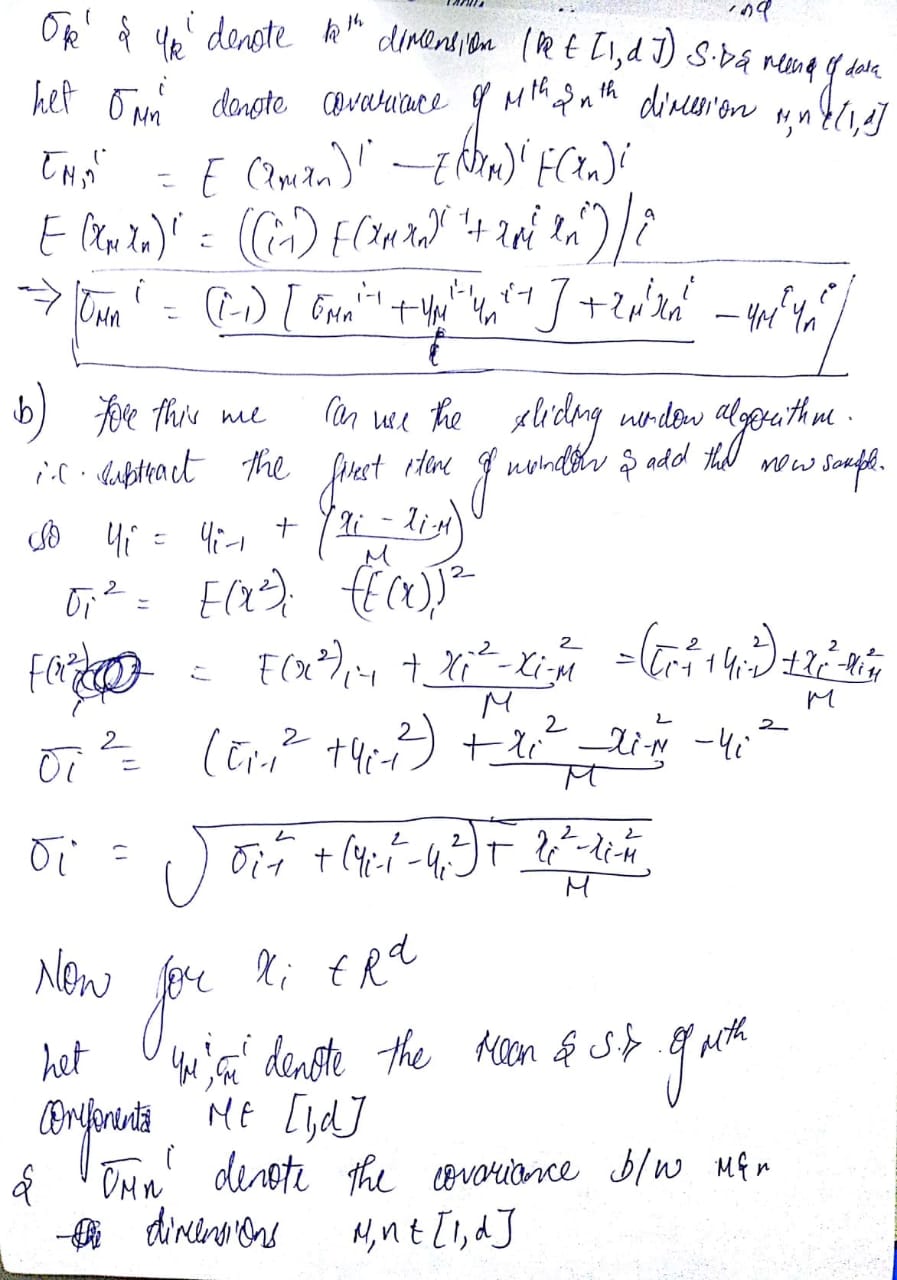 σk^i & μk^i denote kth dimension (k ∈ [1,d]) S.D & mean of data
Let σmn^i denote covariance of mth & nth dimension m,n ∈ [1,d]
σm,n^i = E(xmxn)^i - E(xm)^i E(xn)^i
E(xmxn)^i = ((i-1) E(xmxn)^i-1 + xm^i xn^i)/i
⇒ σmn^i = (i-1) [σmn^i-1 + μm^i-1 μn^i-1] + xm^i xn^i / i - μm^i μn^i
b) For this we can use the sliding window algorithm.
i.e. subtract the first item of window & add the new sample.
so μi = μi-1 + (xi - xi-M / M)
σi^2 = E(x^2)i - (E(x)i)^2
E(x^2)i = E(x^2)i-1 + xi^2 - xi-M^2 / M = (σi-1^2 + μi-1^2) + xi^2 - xi-M^2 / M
σi^2 = (σi-1^2 + μi-1^2) + xi^2 - xi-M^2 / M - μi^2
σi = √(σi-1^2 + (μi-1^2 - μi^2) + xi^2 - xi-M^2 / M)
Now for xi ∈ R^d
Let μm^i, σm^i denote the Mean & S.D of mth
components M ∈ [1,d]
& σmn^i denote the covariance b/w m & n
dimensions M,n ∈ [1,d]